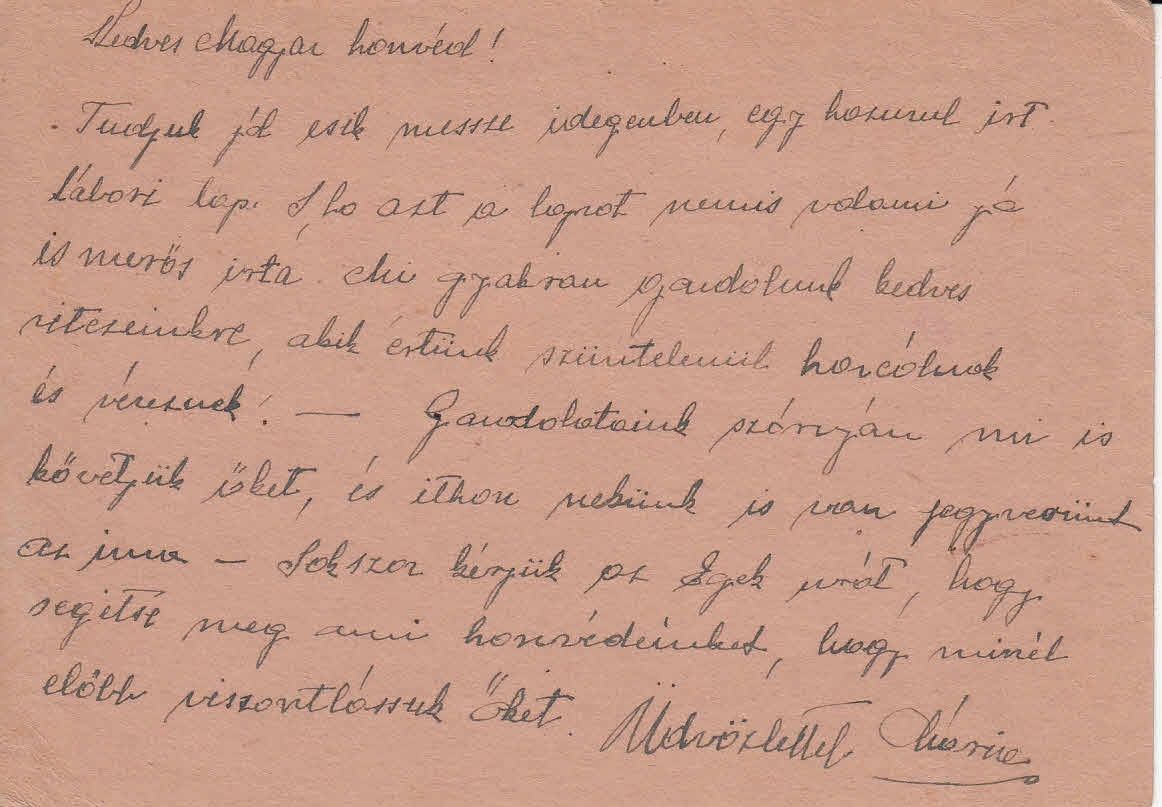 Kedves Magyar honvéd!
Tudjuk jól esik messze idegenben, egy hazurul irt
tábori lap. S ha azt a lapot nemis valami jó
is merős irta. Mi gyakran gondolunk kedves
vitezeinkre, akik értünk szüntelenül harcólnak
és véreznek! — Gondolataink szárnyán mi is
követjük őket, és ithon nekünk is van fegyverünk
az ima — Sokszor kérjük az Egek urát, hogy
segitse meg ami honvédeinket, hogy minél
előbb viszontlássuk Őket. Üdvözlettel